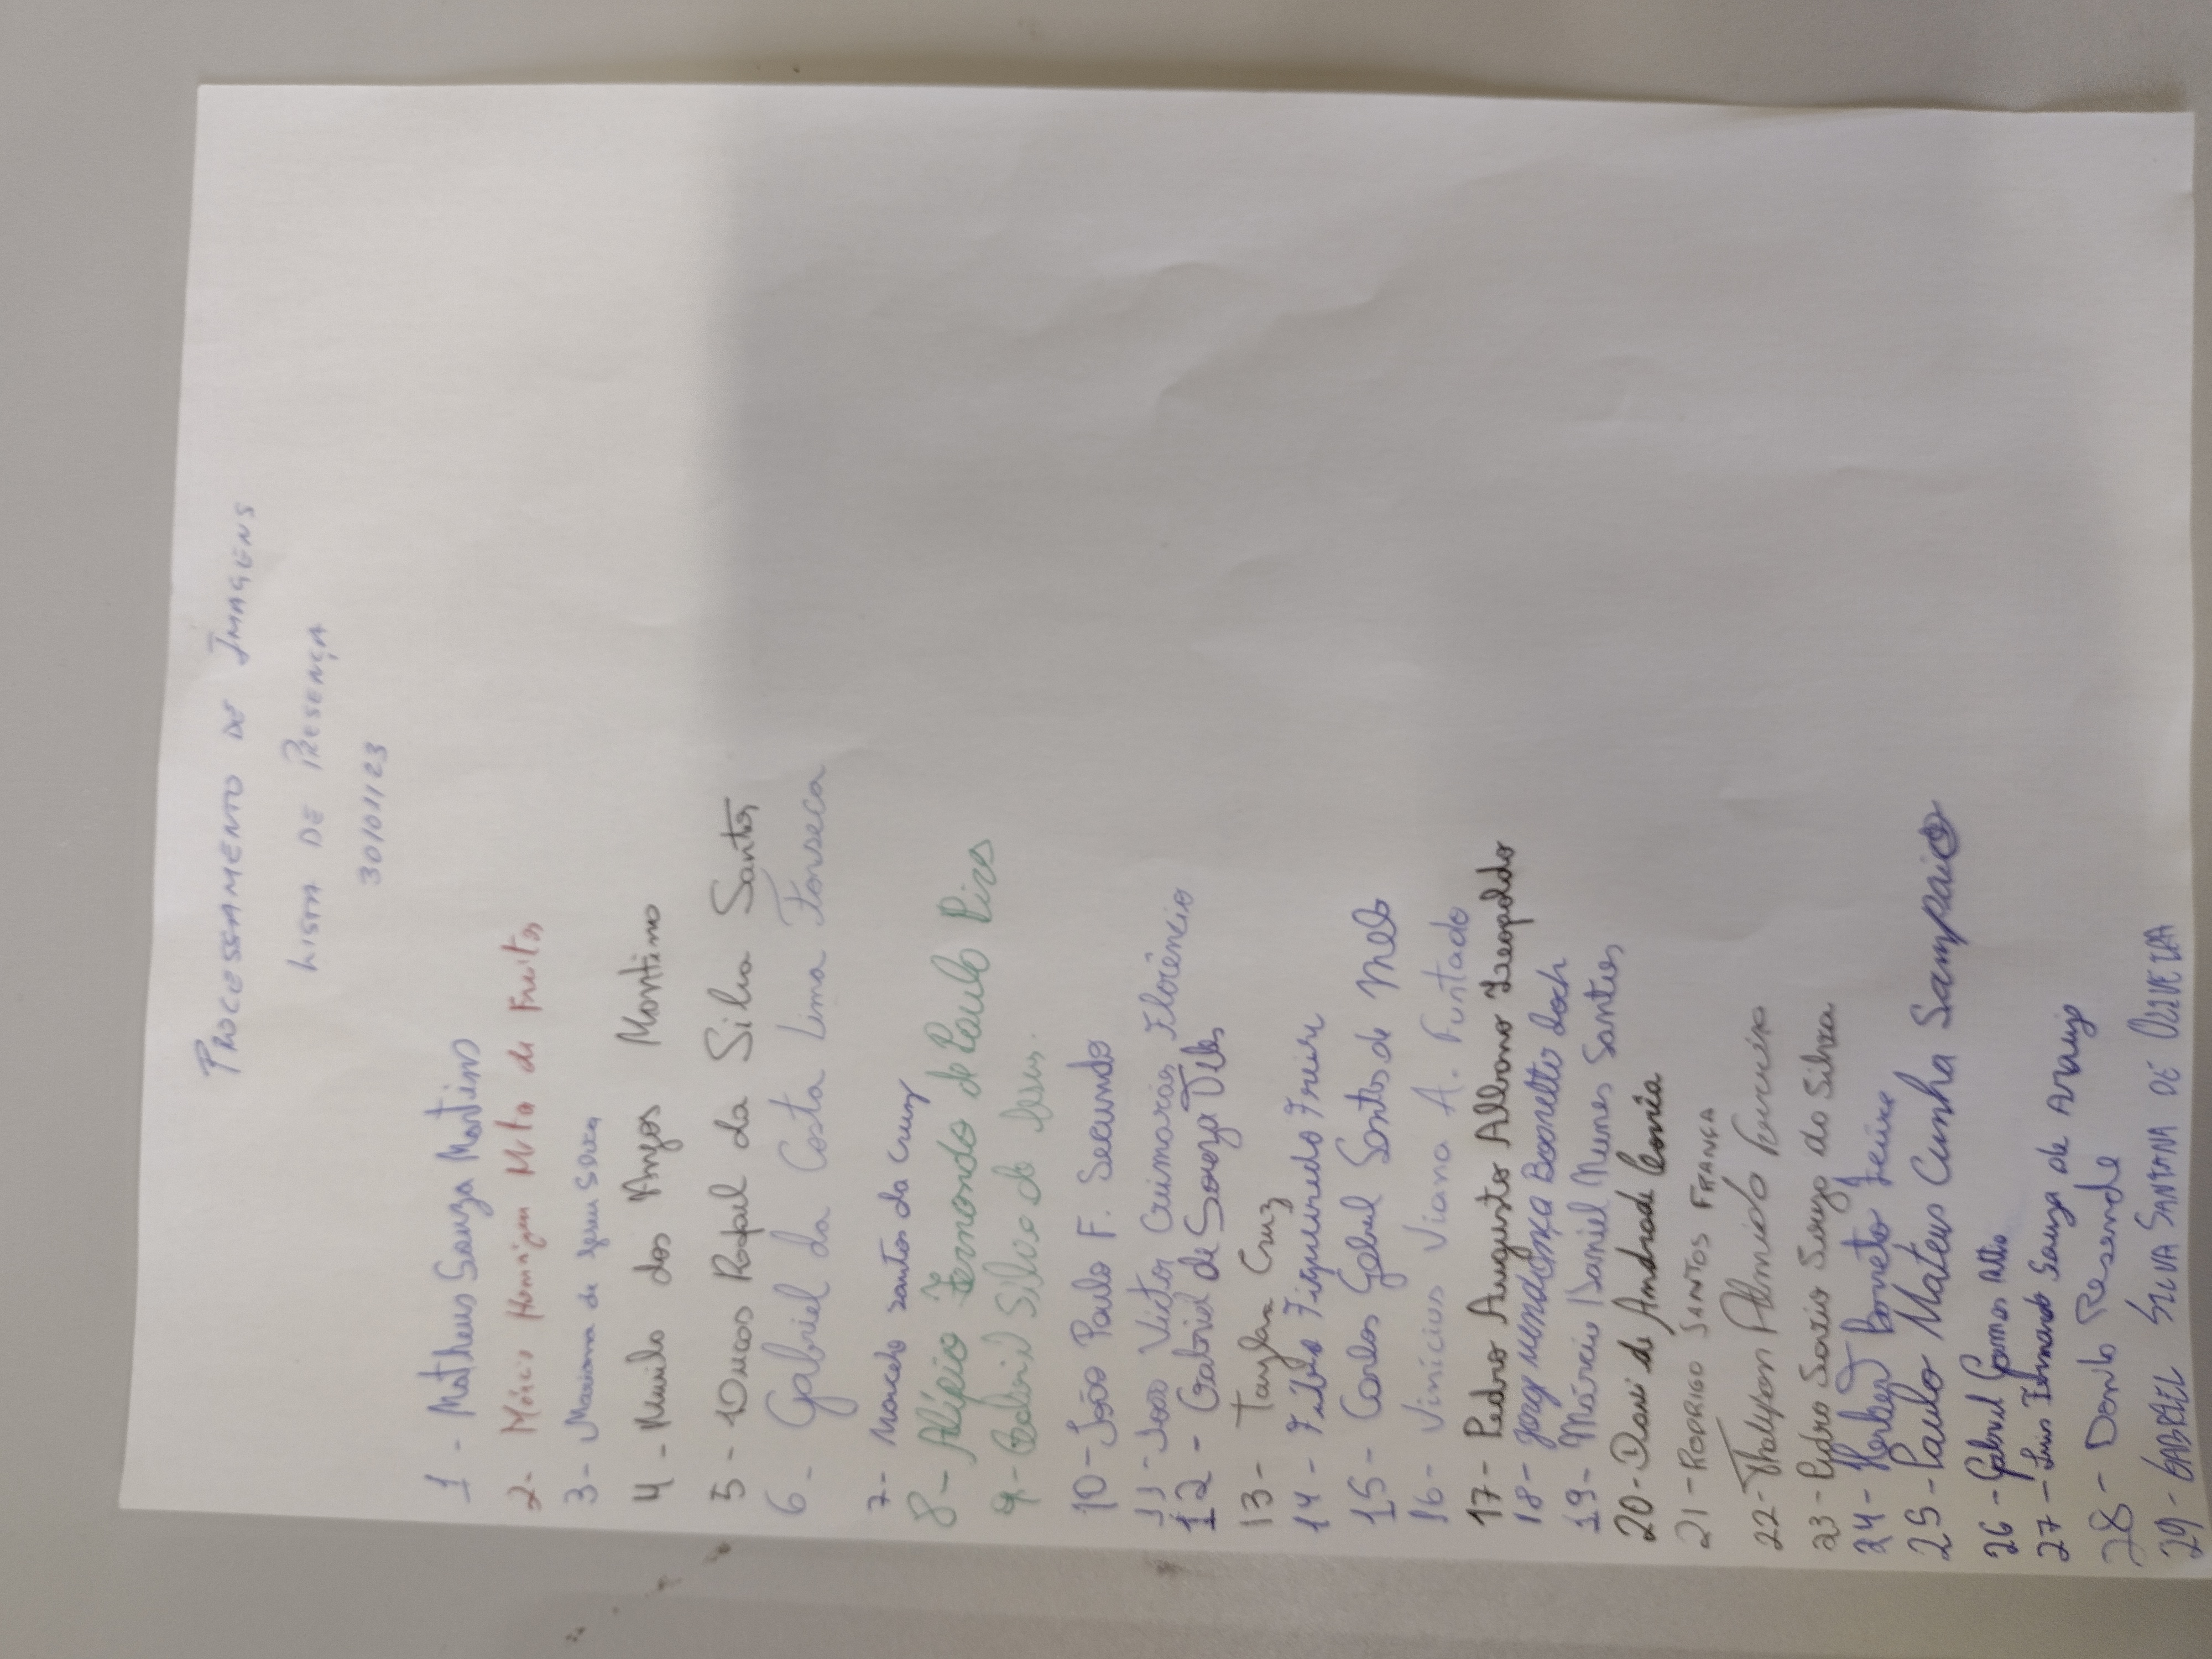 PROCESSAMENTO DE IMAGENS
LISTA DE PRESENÇA
30/01/23
1 - Matheus Souza Martins
2- Márcio de Freitas
3- Mariana de Jesus Silva
4 - Murilo dos Anjos Martins
5 - Lucas Rafael da Silva Santos
6- Gabriel da Costa Lima Fonseca
7- Marcelo santos da Cruz
8- Alípio Fernando de Paulo Pires
9- Gabriel Silva de Jesus.
10- João Paulo F. Secundo
11- João Victor Guimarães Florêncio
12 - Gabriel de Souza Teles
13- Taylan Cruz
14 - Fábio Figueiredo Freire
15- Carlos Gabriel Santos de Melo
16- Vinícius Viana A. Furtado
17- Pedro Augusto Albano Leopoldo
18- Jorge Mendonça
19- Márcio Daniel Nunes Santos
20- Davi de Andrade Corrêa
21- RODRIGO SANTOS FRANÇA
22- Almeida Ferreira
23- Pedro Souza da Silva
24- Herbert Barreto
25- Paulo Mateus Cunha Sampaio
26 - Gabriel Gomes
27 - Luis Fernando Souza de Araujo
28- Danilo Resende
29- GABRIEL SILVA SANTANA DE OLIVEIRA